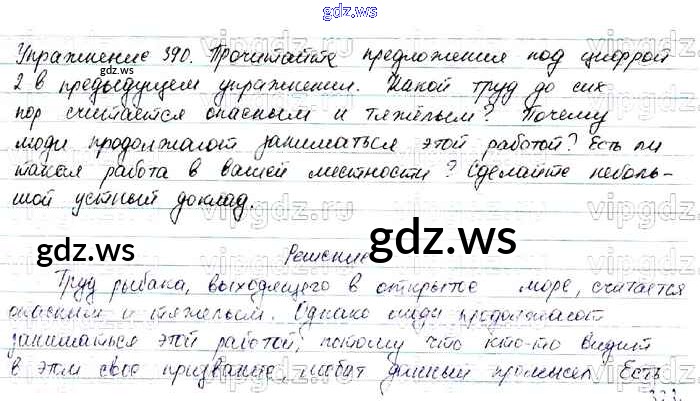 gdz.ws
Упражнение 390. Прочитайте предложения под цифрой
gdz.ws
2 в предыдущем упражнении. Какой труд до сих
пор считается опасным и тяжёлым? Почему
люди продолжают заниматься этой работой? Есть ли
такая работа в вашей местности? Сделайте неболь-
шой устный доклад.
gdz.ws
gdz.ws
Решение
Труд рыбака, выходящего в открытое море, считается
опасным и тяжелым. Однако люди продолжают
заниматься этой работой, потому что кто-то видит
в этом свое призвание, любит данный промысел. Есть
gdz.ws
333